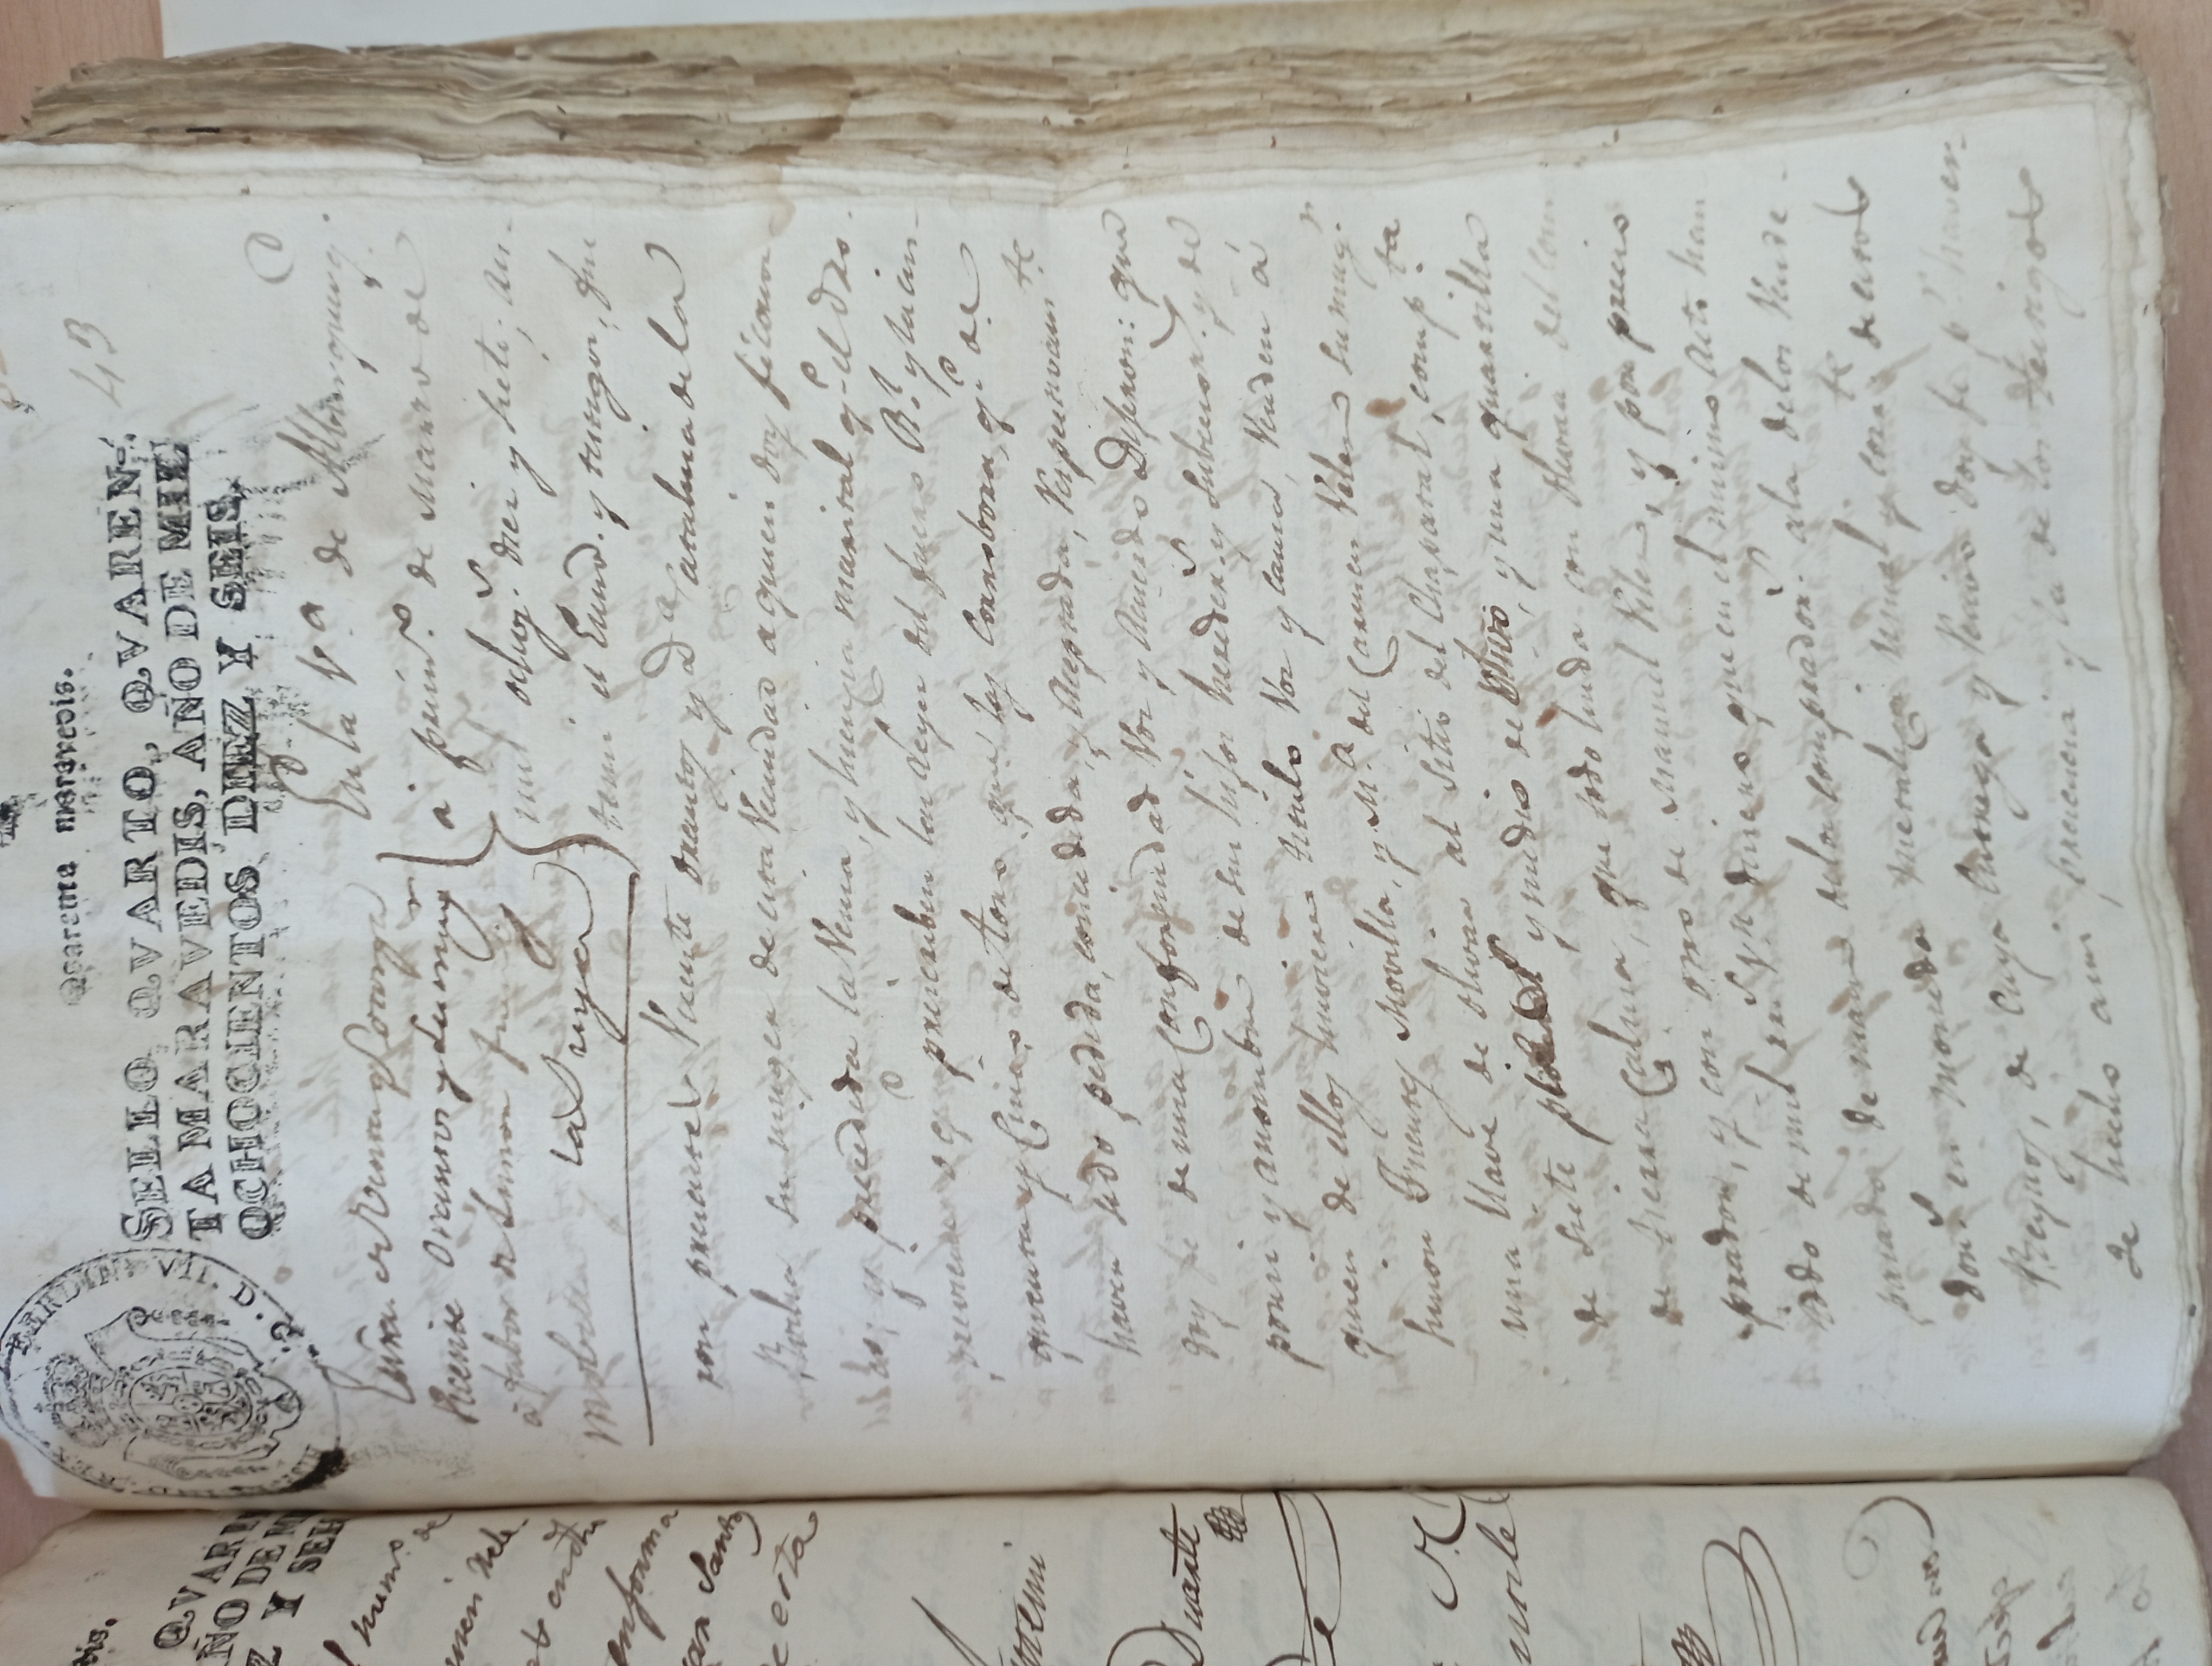 Quarenta maravedis.
43
SELLO QVARTO, QVAREN-
TA MARAVEDIS, AÑO DE MIL
OCHOCIENTOS DIEZ Y SEIS.
Escra. de Venta q.e otorga
Vicente Orantos y su mug.r
á fabor de Simon Fuentes
Mobilla y la Suya
En la V.a de Alburquerq.e
á prim.o de Marzo de
mil ochoz.s diez y siete; an-
temi el Escno. y testigos, fue
ron presentes Vicente Orantos y D.a Catalina de la
Rocha su muger de esta Vecindad a quien doy fé conoz-
co; y precedida la Venia, y licencia marital q.e el Dro.
previene o q.e prescriben las Leyes del fuero R.l y la cin-
quenta y Cinco de toro que las Corrobora, q.e de
haver sido pedida, concedida, y Aceptada, Respectivam.te
doy fe de una Conformidad Voz y Acuerdo Dijeron: que
por si y a nombre de sus hijos hereder.s y subcesor.s y de
quien de ellos huviere titulo Voz y causa, Venden á
Simon Fuentes Movilla, y M.a del Carmen Velez su mug.r
una llave de olivar al Sitio del Chaparral, comp.ta
de siete y medio de olivo, y una quartilla
de tierra Calma, que todo linda con olivar del com
prador, y con otro de Manuel Velez, y por precio
todo de mil rr.s V.n dinero que en el mismo Acto han
pasado de mano de los comprador.s a la de los Vende-
dor.s en moneda metalica usual y corr.te de estos
Reynos, de cuya Entrega y Recivo doy fe p.r haver-
se hecho a mi presencia y la de los testigos